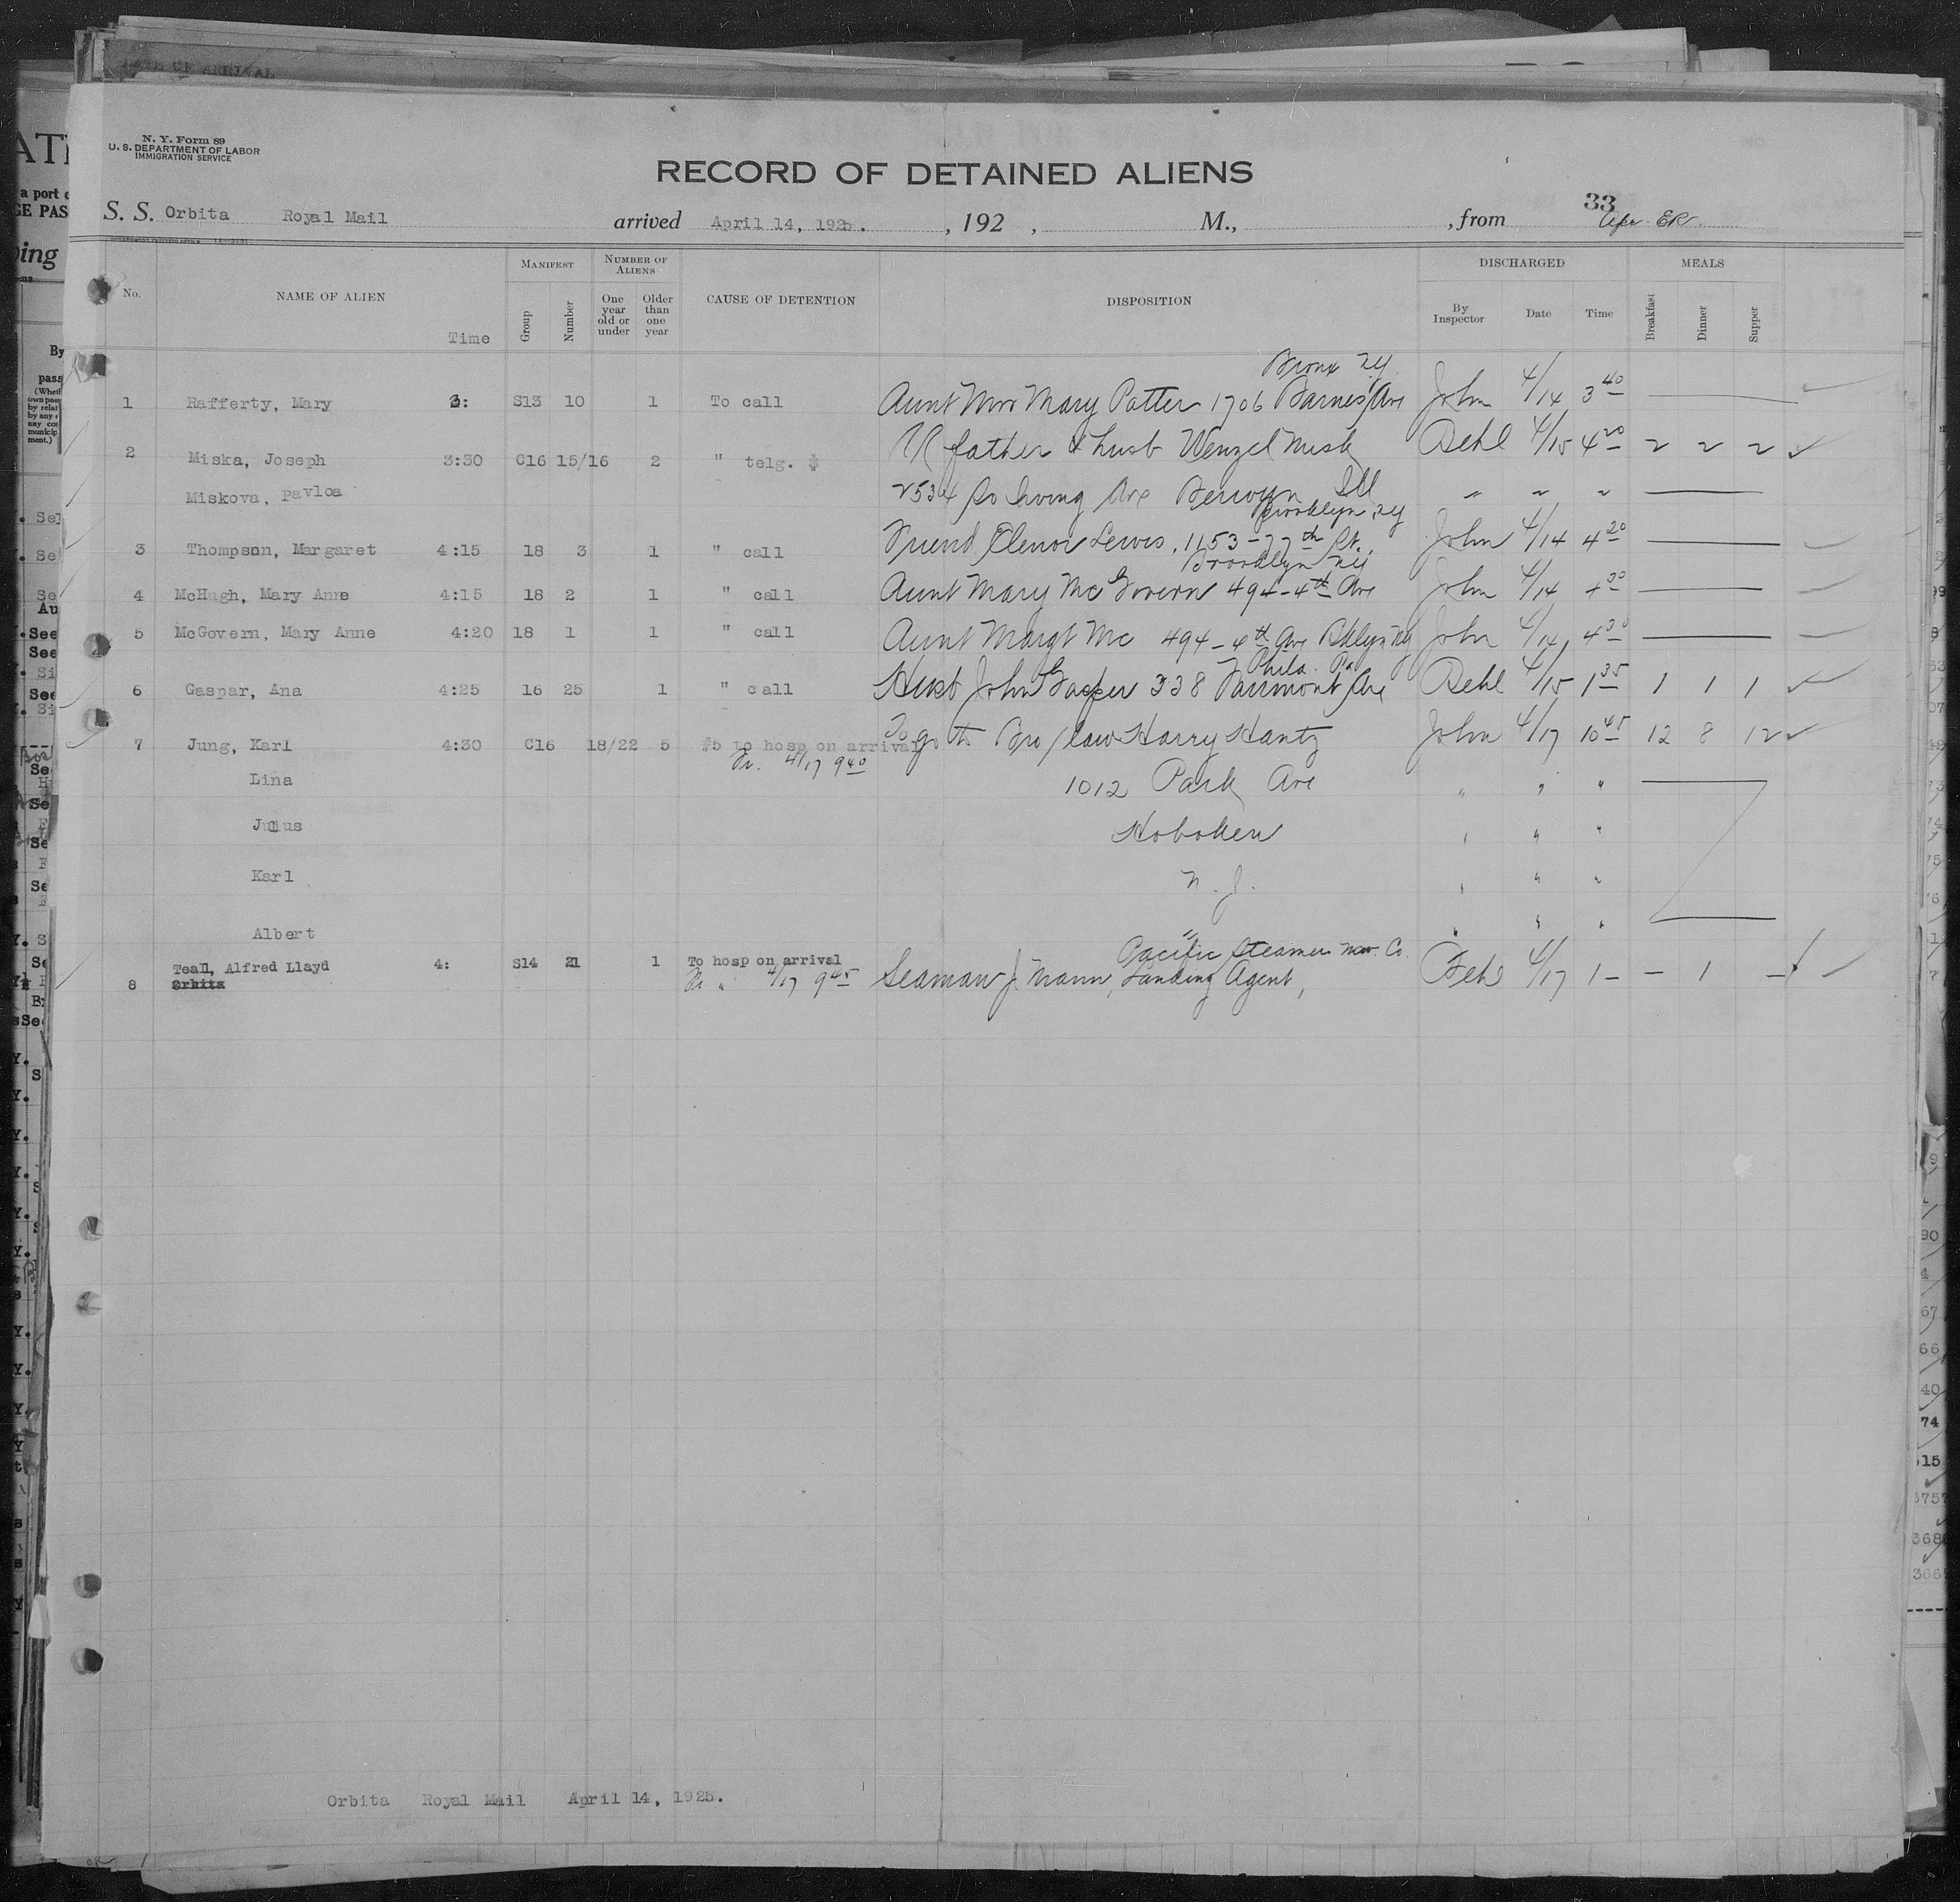 N. Y. Form 89
U. S. DEPARTMENT OF LABOR
IMMIGRATION SERVICE
RECORD OF DETAINED ALIENS
33
S. S. Orbita Royal Mail arrived April 14, 1925. , 192 , M., , from
No. NAME OF ALIEN Time MANIFEST Group Number NUMBER OF ALIENS One year old or under Older than one year CAUSE OF DETENTION DISPOSITION DISCHARGED By Inspector Date Time MEALS Breakfast Dinner Supper
Bronx NY
1 Rafferty, Mary 3: S13 10 1 To call Aunt Mrs Mary Patter 1706 Barnes Ave John 4/14 3 40
2 Miska, Joseph 3:30 C16 15/16 2 " telg. father & husb Wenzel Misk Behl 4/15 4 20 2 2 2
Miskova, Pavloa 2534 So Irving Ave Berwyn Ill " " "
Brooklyn, NY
3 Thompson, Margaret 4:15 18 3 1 " call Friend Elenor Lewis, 1153-77th St. John 4/14 4 20
Brooklyn NY
4 McHugh, Mary Anne 4:15 18 2 1 " call Aunt Mary McGovern 494-4th Ave John 4/14 4 30
5 McGovern, Mary Anne 4:20 18 1 1 " call Aunt Margt Mc 494-4th Ave Bklyn NY John 4/14 4 30
Phila. Pa
6 Gaspar, Ana 4:25 16 25 1 " call Husb John Gasper 338 Fairmont Ave Behl 4/15 1 35 1 1 1
7 Jung, Karl 4:30 C16 18/22 5 #5 to hosp on arrival To go to Bro/law Harry Hantz John 4/17 10 45 12 8 12
4/17 9 40
Lina 1012 Park Ave " " "
Julius Hoboken " " "
Karl N. J. " " "
Albert " " " "
Pacific Steamer Nav. Co.
Teall, Alfred Llayd 4: S14 21 1 To hosp on arrival
8 Orbita " 4/17 9 45 Seaman J. Mann, Landing Agent, Behl 4/17 1 - - 1 -
Orbita Royal Mail April 14, 1925.